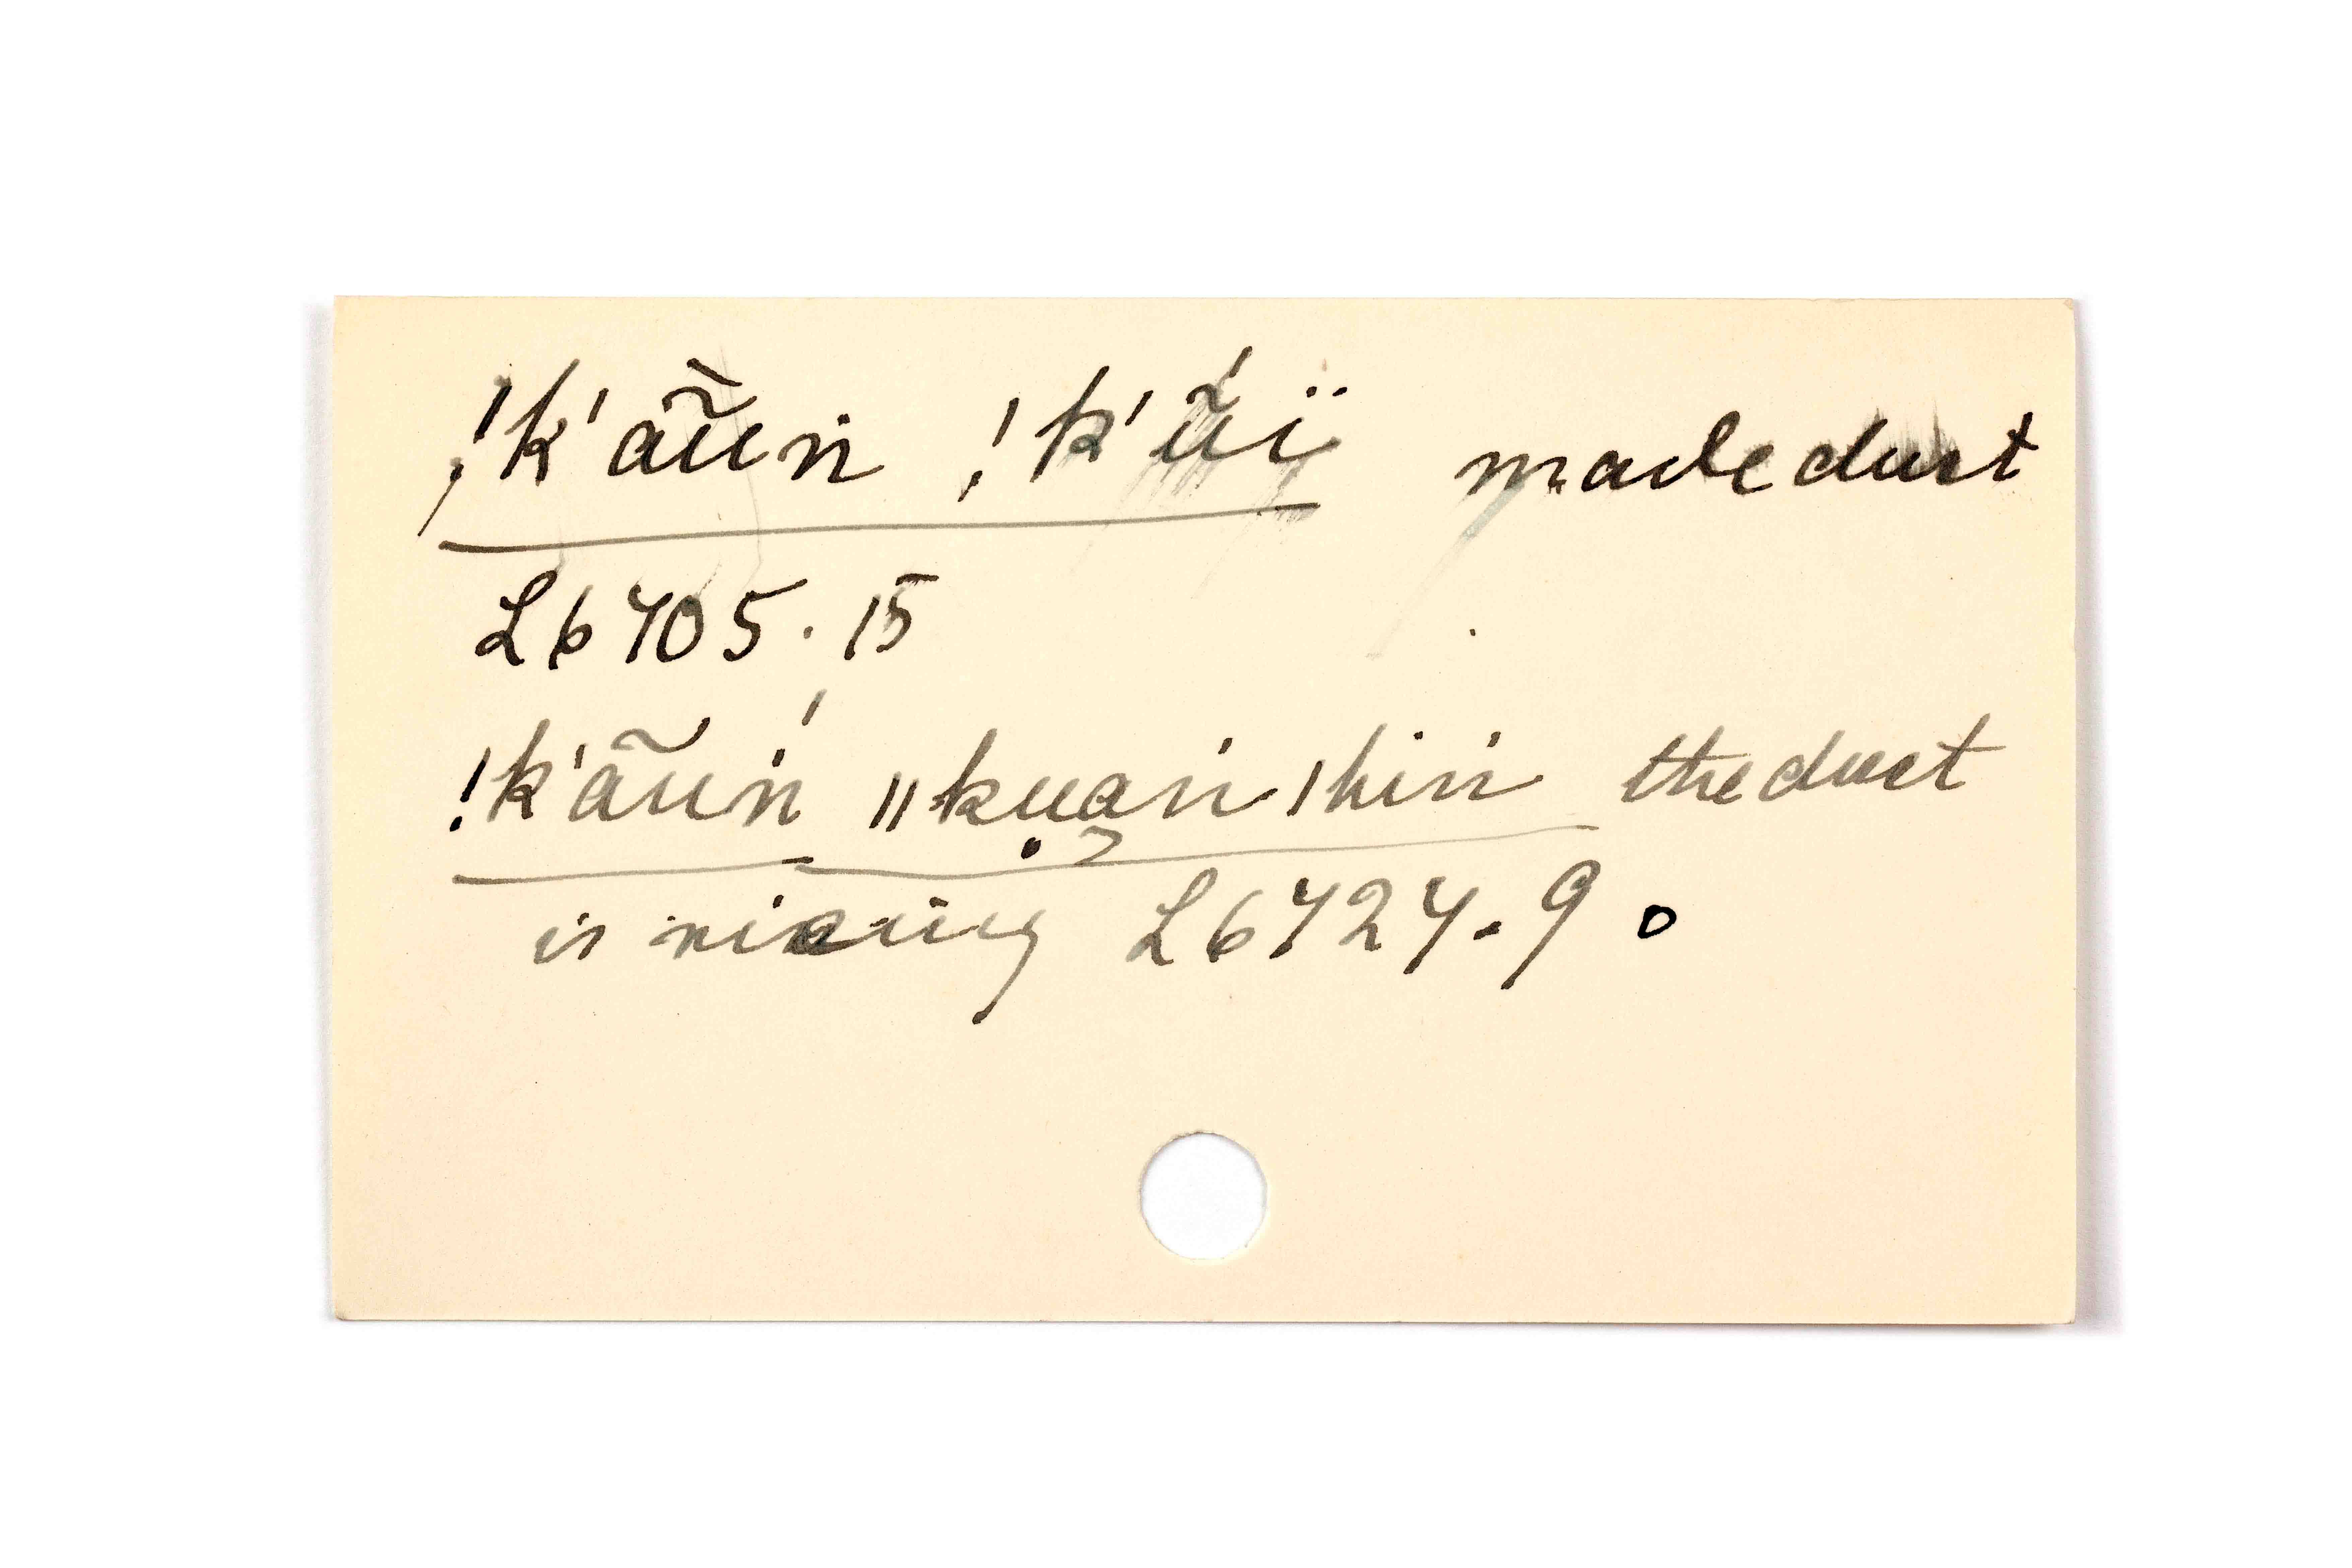 !k'ãũṅ !k'ṹï made dust
L6705.15
!k'ãũṅ́ ǁkṷąṅ ǀhiṅ the dust
is rising L6724.9.